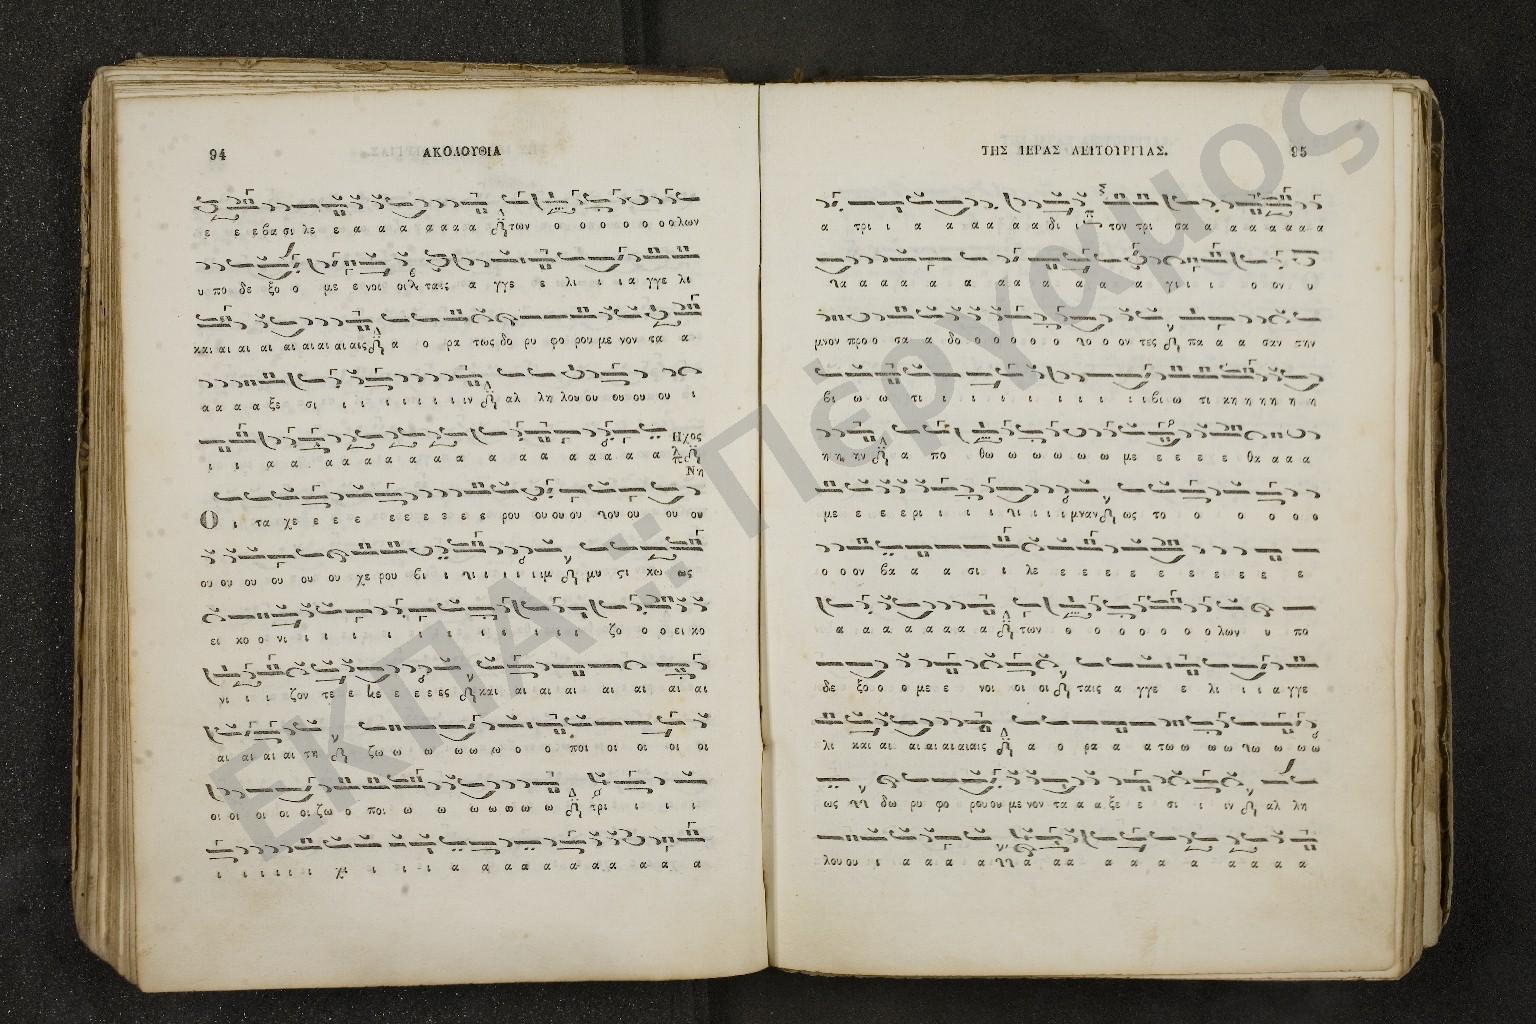 94
ΑΚΟΛΟΥΘΙΑ
ε ε ε βα σι λε ε α α α α α α των ο ο ο ο ο ο ο λων
υ πο δε ξο ο με ε νοι οι ταις α γγε ε λι ι ι α γγε λι
και αι αι αι αι αι αι αι αις α ο ρα τως δο ρυ φο ρου με νον τα α
α α α α ξε σι ι ι ι ι ι ι ιν αλ λη λου ου ου ου ου ι
ι ι α α α α α α α α α α α α α α α α Ηχος
Νη
Οι τα χε ε ε ε ε ε ε ε ε ε ρου ου ου ου ου ου ου ου
ου ου ου ου ου ου χε ρου βι ι ι ι ι ι ιμ μυ στι κω ως
ει κο ο νι ι ι ι ι ι ι ι ι ι ι ι ζο ο ο ει κο
νι ι ι ζον τε ε ε ε ε ε ες και αι αι αι αι αι αι αι
αι αι αι αι τη ζω ω ω ω ω ω ο ο ποι οι οι οι οι
οι οι οι οι οι ζω ο ποι ω ω ω ω ω ω ω τρι ι ι ι
ι ι ι ι ι ι χι ι ι ι α α α α α α α α α α α
ΤΗΣ ΙΕΡΑΣ ΛΕΙΤΟΥΡΓΙΑΣ.
95
α τρι ι α α α α α α α δι ι τον τρι σα α α α α α α α
α α α α α α α α α α α α α γι ι ι ο ον υ
μνον προ ο σα α δο ο ο ο ο ο ο ον τες πα α α σαν την
βι ω ω τι ι ι ι ι ι ι ι ι ι βι ω τι κη η η η η
η η ην α πο θω ω ω ω ω ω με ε ε ε ε θα α α α
με ε ε ε ρι ι ι ι ι ι ι μναν ως το ο ο ο ο ο ο
ο ο ον βα α α σι ι λε ε ε ε ε ε ε ε ε ε ε
α α α α α α α α των ο ο ο ο ο ο ο ο λων υ πο
δε ξο ο ο με ε νοι οι οι ταις α γγε ε λι ι ι α γγε
λι και αι αι αι αι αι αις α ο ρα α α τω ω ω ω ω ω ω ω
ως δω ρυ φο ρου ου με νον τα α α ξε ε σι ι ιν αλ λη
λου ου ι α α α α α α α α α α α α α α α
ΕΚΠΑ:: Πέργαμος